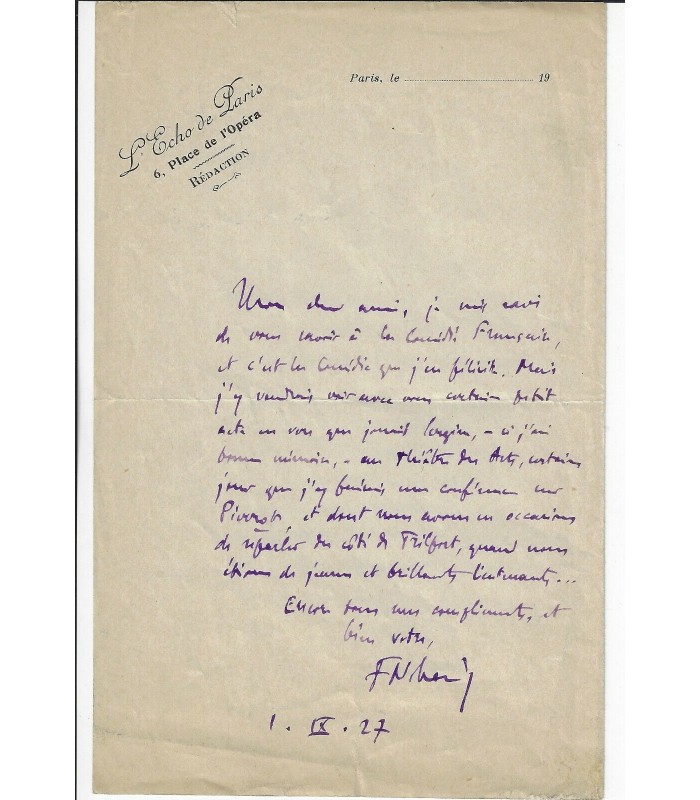 Paris, le 19
L'Echo de Paris
6, Place de l'Opéra
RÉDACTION
Mon cher ami, je suis ravi
de vous savoir à la Comédie Française,
et c'est la Comédie que j'en félicite. Mais
j'y voudrais voir avec vous certain petit
acte en vers que jouait - si j'ai
bonne mémoire, - au Théâtre des Arts, certain
jour que j'y faisais une conférence sur
et dont nous avons eu occasion
de reparler du côté de Trilport, quand nous
étions de jeunes et brillants lieutenants...
Encore tous mes compliments, et
bien votre,
1. IX. 27